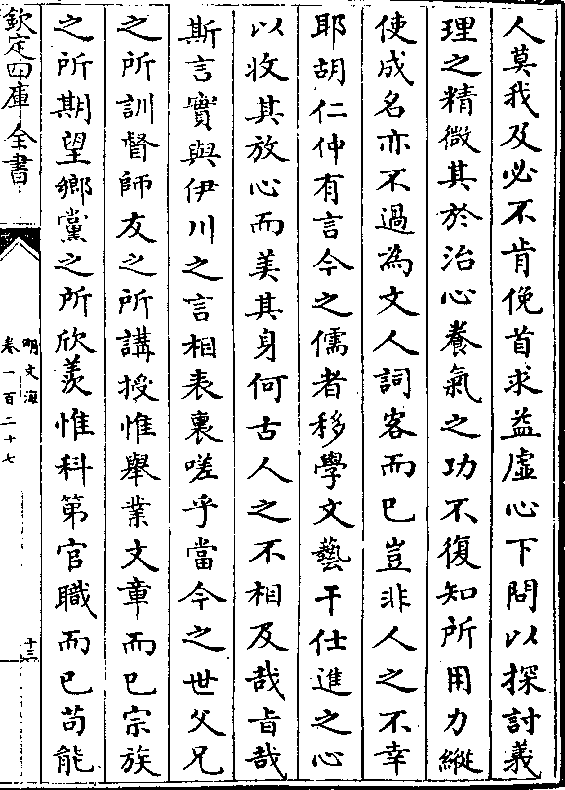 人莫我及必不肯俛首求益虛心下問以探討義
理之精微其於治心養氣之功不復知所用力縱
使成名亦不過為文人詞客而已豈非人之不幸
耶胡仁仲有言今之儒者移學文藝干仕進之心
以收其放心而美其身何古人之不相及哉旨哉
斯言實與伊川之言相表裏嗟乎當今之世父兄
之所訓督師友之所講授惟舉業文章而已宗族
之所期望鄉黨之所欣羨惟科第官職而已苟能
欽定四庫全書
明文海
卷一百二十七
十三